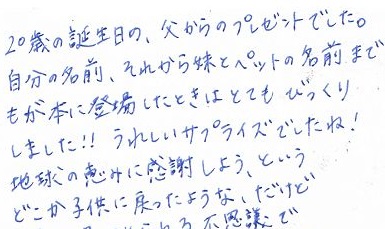 20歳の誕生日の、父からのプレゼントでした。
自分の名前、それから妹とペットの名前まで
もが本に登場したときはとてもびっくり
しました!! うれしいサプライズでしたね!
地球の恵みに感謝しよう、という
どこか子供に戻ったような、だけど
られる不思議で